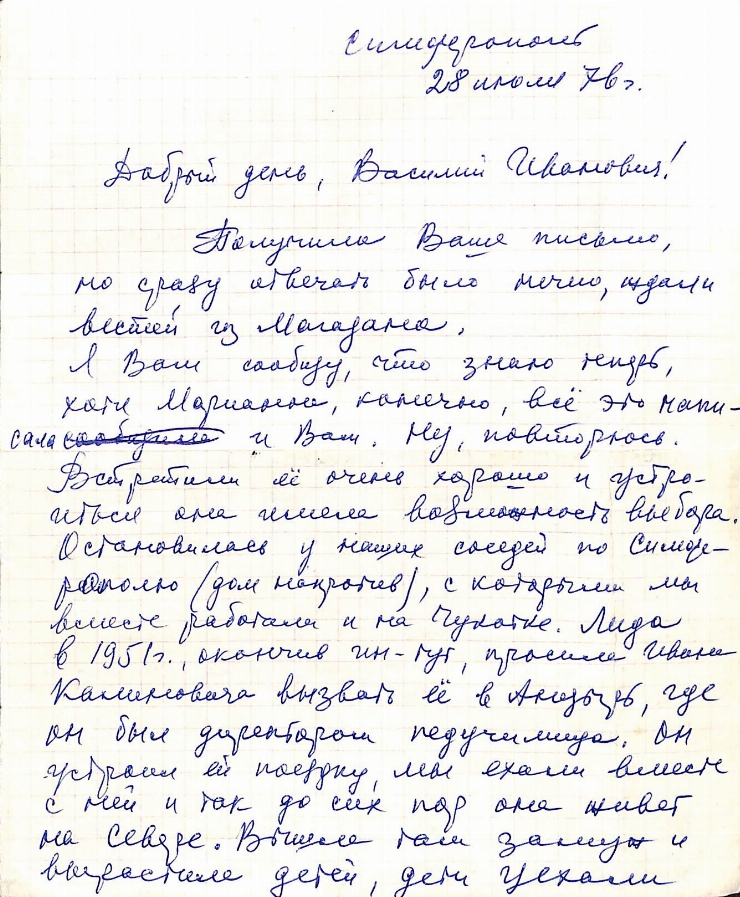 Симферополь
28 июля 76 г.
Добрый день, Василий Иванович!
Получила Ваше письмо,
но сразу отвечать было нечно, ждали
вестей из Магадана.
Я Вам сообщу, что знаю теперь,
хотя Марианна, конечно, всё это напи-
сала сообщила и Вам. Ну, повторюсь.
Встретили её очень хорошо и устро-
иться она имела возможность выбора.
Остановилась у наших соседей по Симфе-
рополю (дом напротив), с которыми мы
вместе работали и на Чукотке. Лида
в 1951г., окончив ин-тут, просила Ивана
Калиновича вызвать её в Анадырь, где
он был директором педучилища. Он
устроил ей поездку, мы ехали вместе
с ней и так до сих пор она живет
на Севере. Вышла там замуж и
вырастила детей, дети уехали